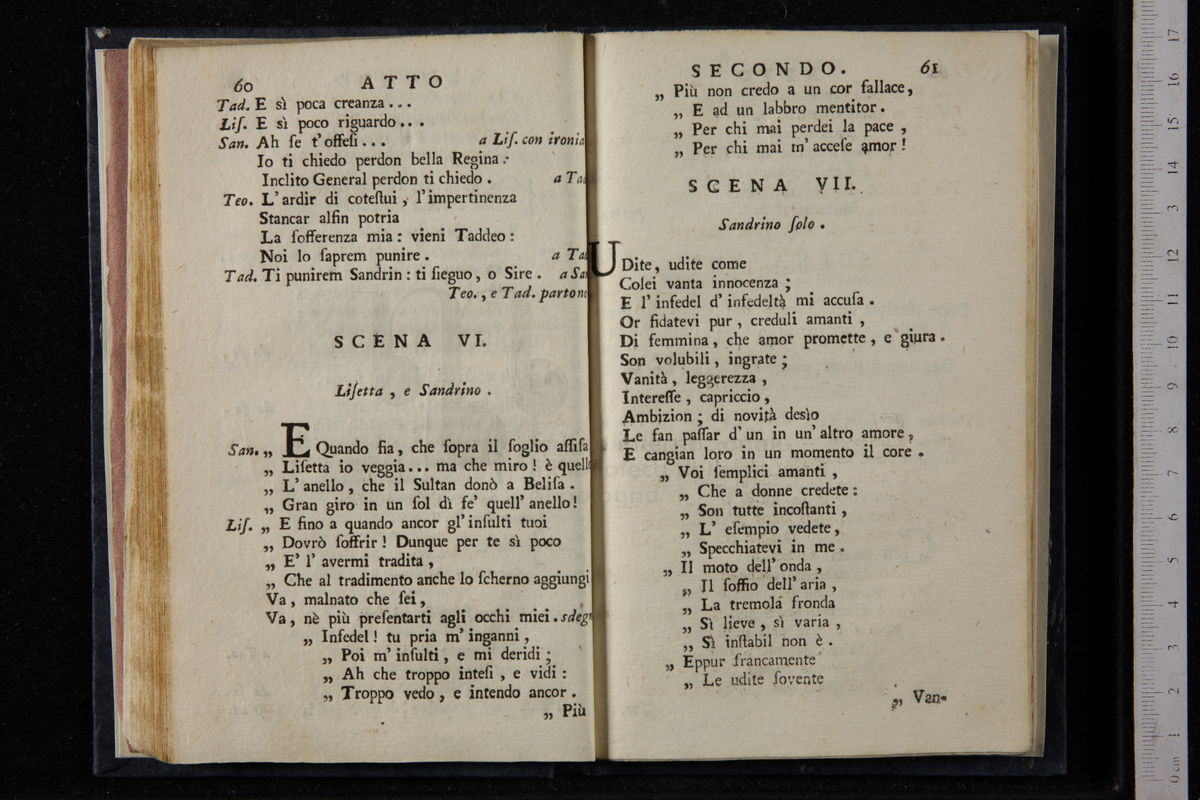 60 ATTO
Tad. E sì poca creanza...
Liſ. E sì poco riguardo...
San. Ah ſe t'offeſi... a Liſ. con ironia
Io ti chiedo perdon bella Regina.
Inclito General perdon ti chiedo. a Tad
Teo. L'ardir di coteſtui, l'impertinenza
Stancar alfin potria
La ſofferenza mia: vieni Taddeo:
Noi lo ſaprem punire. a Tad
Tad. Ti punirem Sandrin: ti ſieguo, o Sire. a San
Teo., e Tad. partono
SCENA VI.
Liſetta, e Sandrino.
San. „ E Quando fia, che ſopra il ſoglio aſſiſa
„ Liſetta io veggia... ma che miro! è quello
„ L'anello, che il Sultan donò a Beliſa.
„ Gran giro in un ſol dì fe' quell'anello!
Liſ. „ E fino a quando ancor gl'inſulti tuoi
„ Dovrò ſoffrir! Dunque per te sì poco
„ E' l'avermi tradita,
„ Che al tradimento anche lo ſcherno aggiungi
Va, malnato che ſei,
Va, nè più preſentarti agli occhi miei. sdegn
„ Infedel! tu pria m'inganni,
„ Poi m'inſulti, e mi deridi;
„ Ah che troppo inteſi, e vidi:
„ Troppo vedo, e intendo ancor.
„ Più
SECONDO. 61
„ Più non credo a un cor fallace,
„ E ad un labbro mentitor.
„ Per chi mai perdei la pace,
„ Per chi mai m'acceſe amor!
SCENA VII.
Sandrino ſolo.
UDite, udite come
Colei vanta innocenza;
E l'infedel d'infedeltà mi accuſa.
Or fidatevi pur, creduli amanti,
Di femmina, che amor promette, e giura.
Son volubili, ingrate;
Vanità, leggerezza,
Intereſſe, capriccio,
Ambizion; di novità desìo
Le fan paſſar d'un in un'altro amore,
E cangian loro in un momento il core.
„ Voi ſemplici amanti,
„ Che a donne credete:
„ Son tutte incoſtanti,
„ L'eſempio vedete,
„ Specchiatevi in me.
„ Il moto dell'onda,
„ Il ſoffio dell'aria,
„ La tremola fronda
„ Sì lieve, sì varia,
„ Sì inſtabil non è.
„ Eppur francamente
„ Le udite ſovente
„ Van-
0 cm 1 2 3 4 5 6 7 8 9 10 11 12 13 14 15 16 17